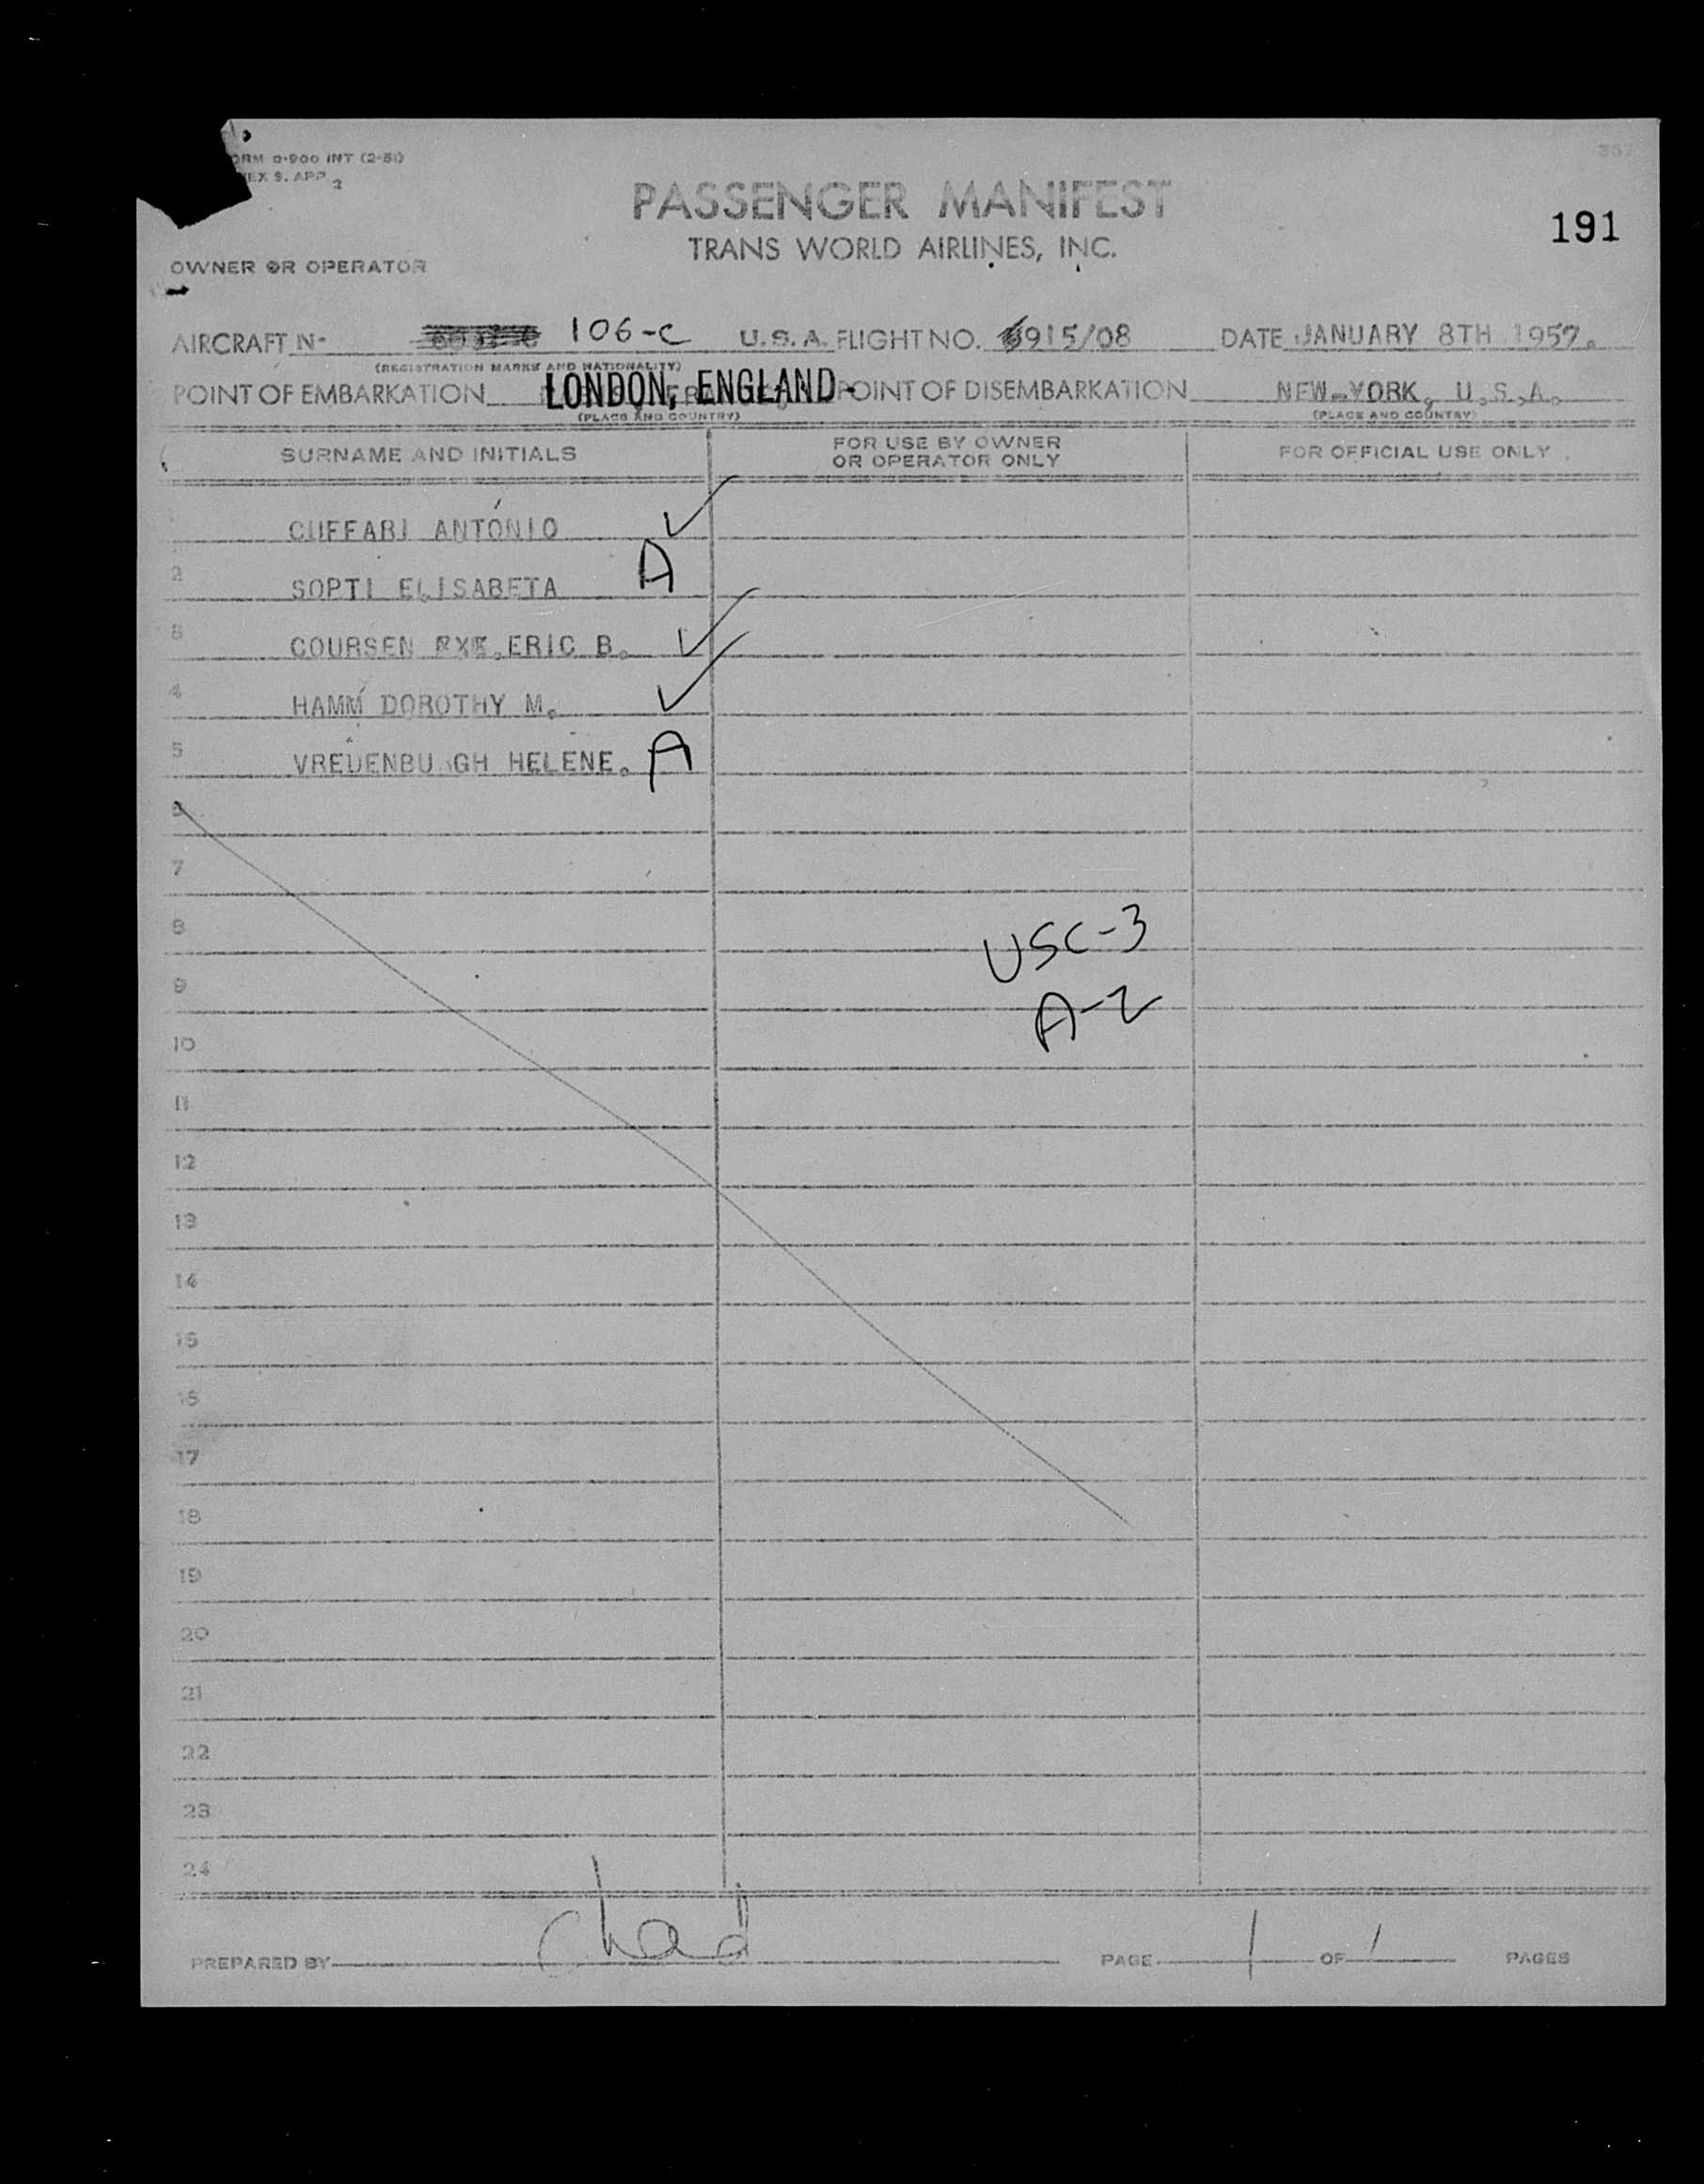 ORM 0-900 INT (2-51)
EX 9. APP 2
PASSENGER MANIFEST
191
TRANS WORLD AIRLINES, INC.
OWNER OR OPERATOR
AIRCRAFT N- 106-C U.S.A. FLIGHT NO. 915/08 DATE JANUARY 8TH 1957.
(REGISTRATION MARKS AND NATIONALITY)
POINT OF EMBARKATION LONDON, ENGLAND- POINT OF DISEMBARKATION NEW-YORK, U.S.A.
(PLACE AND COUNTRY) (PLACE AND COUNTRY)
SURNAME AND INITIALS FOR USE BY OWNER OR OPERATOR ONLY FOR OFFICIAL USE ONLY
1 CUFFARI ANTONIO ✓
2 SOPTI ELISABETA A
3 COURSEN ERIC B. ✓
4 HAMM DOROTHY M. ✓
5 VREDENBURGH HELENE. A
6
7
8 USC-3
9 A-2
10
11
12
13
14
15
16
17
18
19
20
21
22
23
24
PREPARED BY PAGE 1 OF 1 PAGES